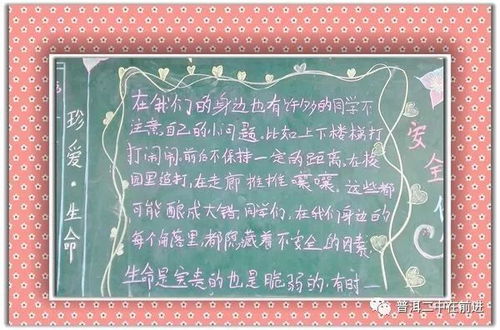 珍爱·生命
在我们的身边也有许多的同学不
注意自己的小问题.比如上下楼梯打
打闹闹.前后不保持一定的距离.在校
园里追打,在走廊推推嚷嚷.这些都
可能酿成大错.同学们,在我们身边的
每个角落里,都隐藏着不安全的因素.
生命是宝贵的也是脆弱的,有时一
安全
普洱二中在前进